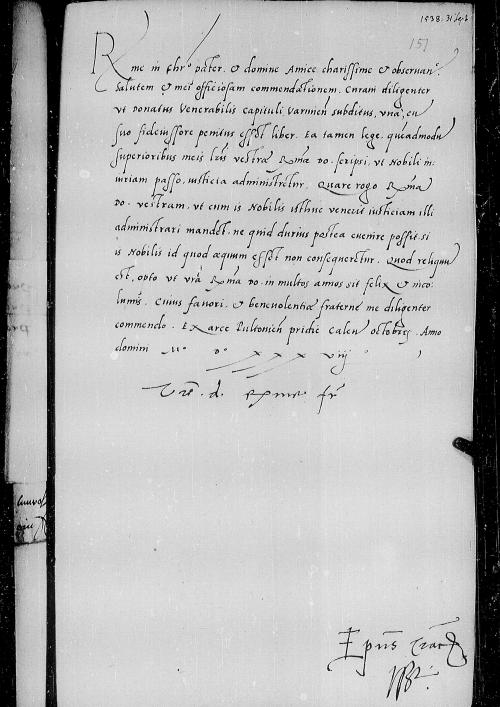 1538. 31 Sept
151
Rme in Chro pater. & domine Amice charissime & observan.
Salutem & mei officiosam commendationem. Curam diligenter
vt Donatus Venerabilis capituli Varmien subditus, vna, cu
suo fideiussore penitus esset liber. Ea tamen lege, queadmodu
superioribus meis lris vestræ Rmæ do. scripsi, vt Nobili in:
iuriam passo, iusticia administretur. Quare rogo Rma
do. vestram, vt cum is Nobilis isthuc venerit iusticiam illi
administrari mandet, ne quid durius postea euenire possit, si
is Nobilis id quod æquum esset non consequeretur. Quod reliquu
est, opto vt vra Rma do. in multos annos sit felix & inco:
lumis. Cuius fauori, & beneuolentiæ fraternæ me diligenter
commendo. Ex arce Pultouien pridie Calen octobres. Anno
domini Mo Do xxxviijo
Vre. d. Rme fr
Epus Crac